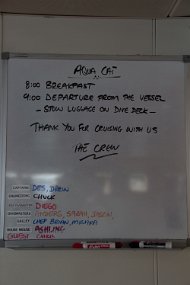 AQUA CAT
8:00 BREAKFAST
9:00 DEPARTURE FROM THE VESSEL
- STOW LUGGAGE ON DIVE DECK -
THANK YOU FOR CRUISING WITH US
THE CREW
CAPTAINS DES, DREW
CHUCK
DIEGO
SARAH, JASON
CHEF BRIAN,
ASHLING
CHRIS